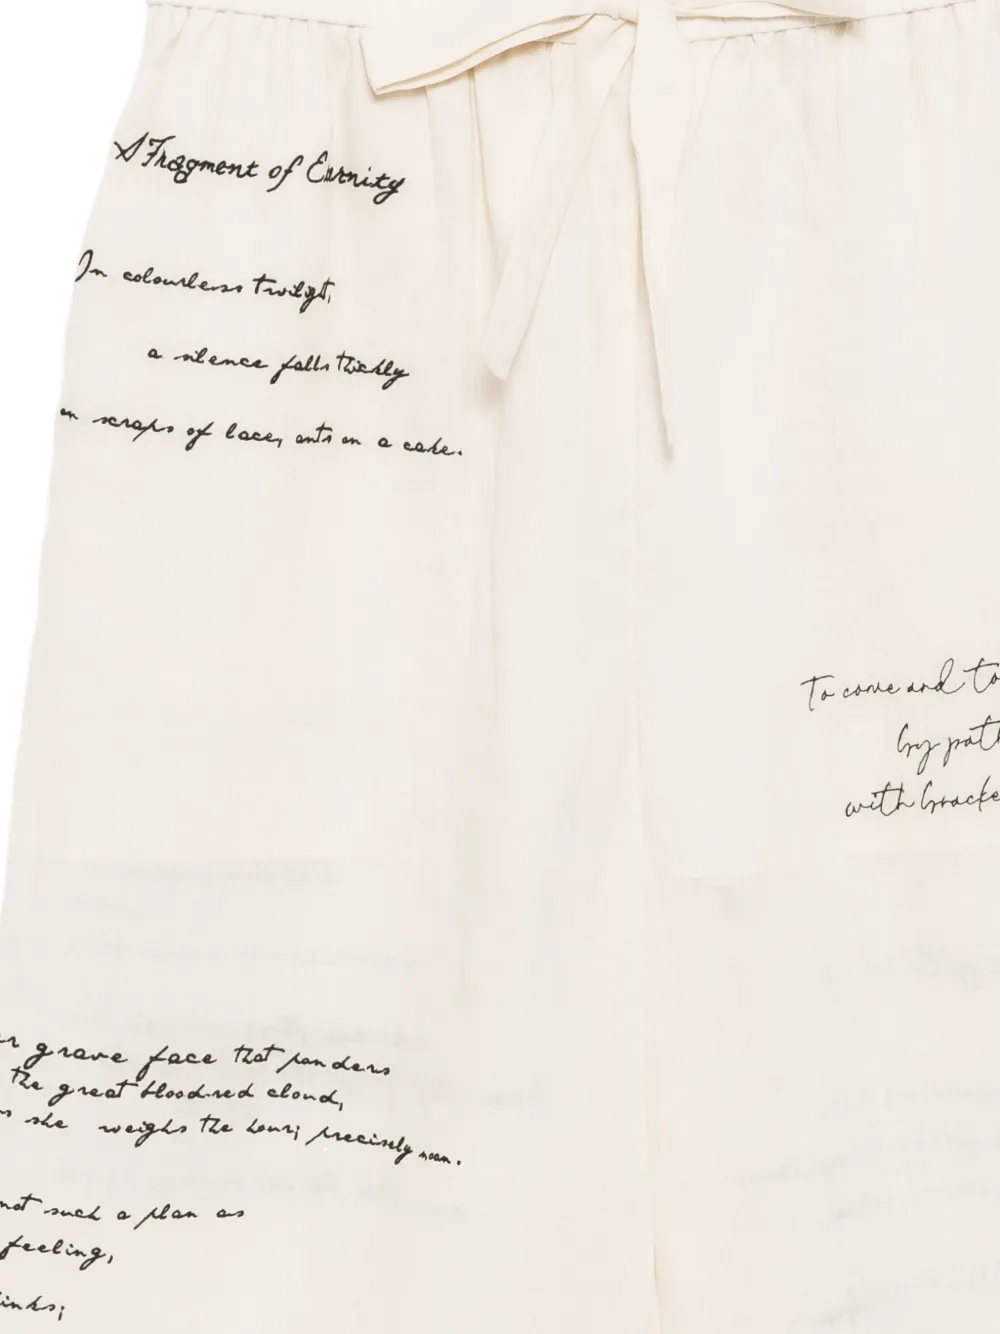 A Fragment of Eternity
In colourless twilight,
a silence falls thickly
on scraps of lace, ants on a cake.
To come and to
by path
with bracke
grave face that ponders
the great blood-red cloud,
she weighs the hour; precisely noon.
not such a plan as
feeling,
inks;